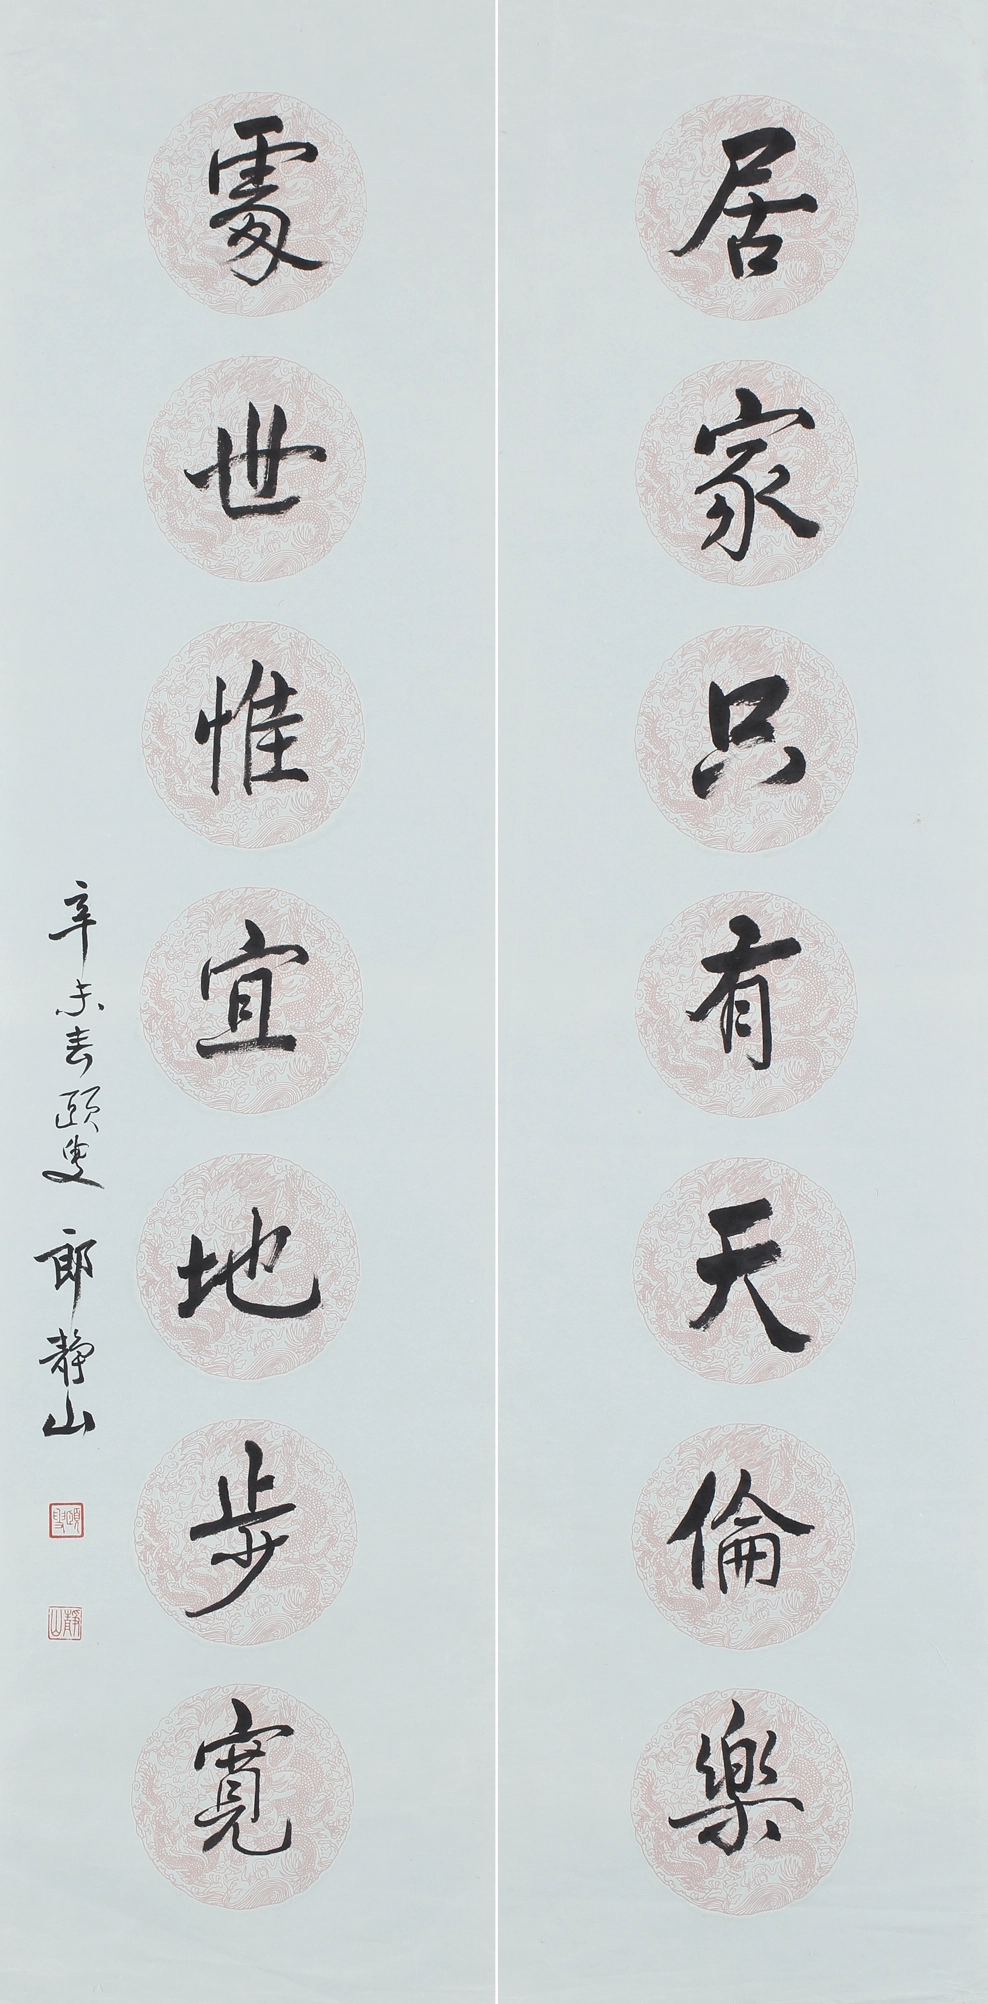 居家只有天倫樂
處世惟宜地步寬
辛未春頤叟 郎靜山
頤叟
靜山